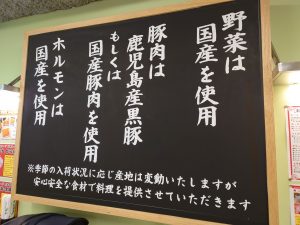 野菜は
国産を使用
豚肉は
鹿児島産黒豚
もしくは
国産豚肉を使用
ホルモンは
国産を使用
※季節の入荷状況に応じ産地は変動いたしますが
安心安全な食材で料理を提供させていただきます